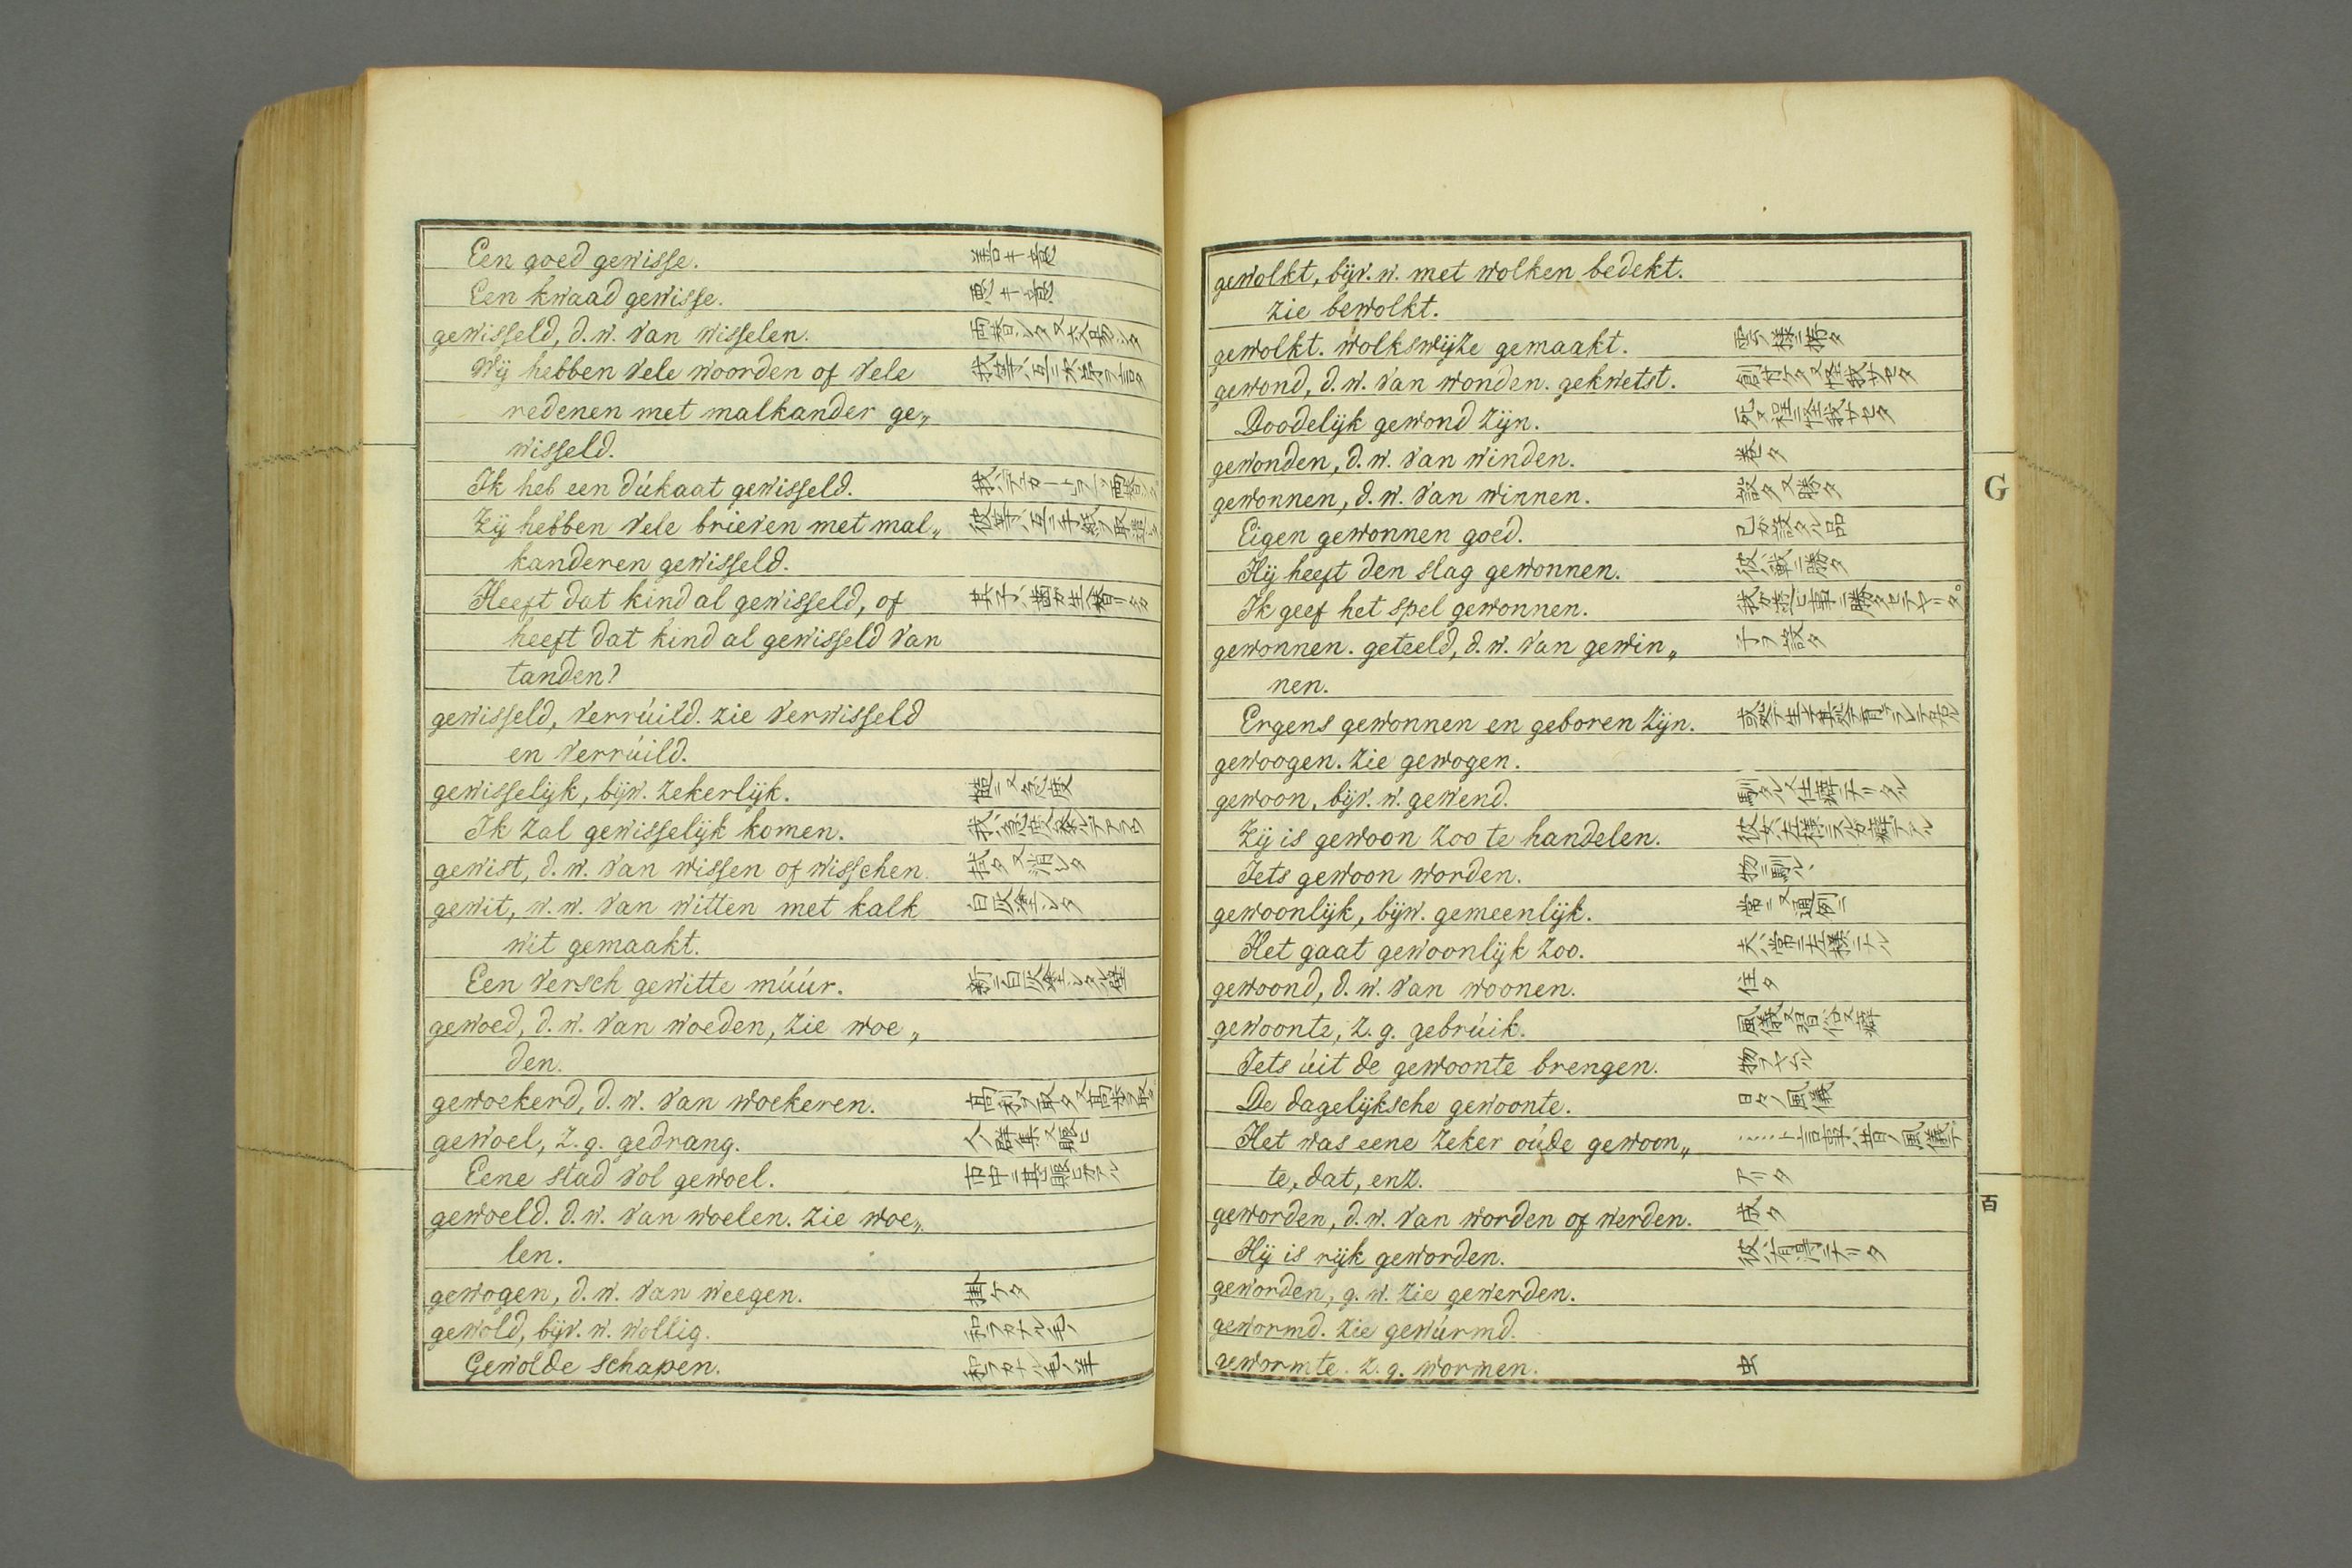 Een goed gewisse. 善キ意
Een kwaad gewisse. 悪キ意
gewisseld, d. w. van wisselen. 両替シタ又交易シタ
Wij hebben vele woorden of vele 我等ハ互ニ
redenen met malkander ge„
wisseld.
Ik heb een dúkaat gewisseld.
Zij hebben vele brieven met mal„ 彼等ハ互ニ手紙ヲ取遣シタ
kanderen gewisseld.
Heeft dat kind al gewisseld, of 其子ハ歯ガ生替リタカ
heeft dat kind al gewisseld van
tanden?
gewisseld, verrúild. zie verwisseld
en verrúild.
gewisselijk, bijw. zekerlijk. 慥ニ又急度
Ik zal gewisselijk komen. 我ハ急度来ルデアラウ
gewist, d. w. van wissen of wisschen. 拭タ又消シタ
gewit, w. w. van witten met kalk 白灰塗シタ
wit gemaakt.
Een versch gewitte múúr. 新ニ白灰塗シタル壁
gewoed, d. w. van woeden, zie woe„
den.
gewoekerd, d. w. van woekeren. 高利ヲ取タ又
gewoel, z. g. gedrang. 人ノ群集又賑ヒ
Eene stad vol gewoel.
gewoeld. d. w. van woelen. zie woe„
len.
gewogen, d. w. van weegen. 掛ケタ
gewold, bijv. w. wollig. 和ラカナル毛ノ
Gewolde schapen. 和ラカナル毛ノ羊
gewolkt, bijv. w. met wolken bedekt.
zie bewolkt.
gewolkt. wolkswijze gemaakt. 雲ノ様ニ拵タ
gewond, d. w. van wonden. gekwetst. 創付ケタ又怪我サセタ
Doodelijk gewond zijn. 死ヌ程ニ怪我サセタ
gewonden, d. w. van winden. 巻タ
gewonnen, d. w. van winnen. 設タ又勝タ
Eigen gewonnen goed. 己ガ設タル品
Hij heeft den slag gewonnen. 彼ハ戦ニ勝タ
Ik geef het spel gewonnen.
gewonnen. geteeld, d. w. van gewin„ 子ヲ設タ
nen.
Ergens gewonnen en geboren zijn.
gewoogen. zie gewogen.
gewoon, bijv. w. gewend. 馴タル又仕癖ニナリタル
Zij is gewoon zoo te handelen. 彼女ハ左様ニスルガ癖デアル
Iets gewoon worden. 物ニ馴ル
gewoonlijk, bijw. gemeenlijk. 常ニ又通例ニ
Het gaat gewoonlijk zoo. 夫ハ常ニ左様ニナル
gewoond, d. w. van woonen. 住タ
gewoonte, z. g. gebrúik. 風儀又習俗又癖
Iets úit de gewoonte brengen. 物ヲヤメル
De dagelijksche gewoonte. 日々ノ風儀
Het was eene zeker oúde gewoon„ ……ト言事ハ昔ノ風儀デ
te, dat, enz. アリタ
geworden, d. w. van worden of werden. 成タ
Hij is rijk geworden. 彼ハ有得ニナリタ
geworden, g. w. zie gewerden.
gewormd. zie gewúrmd.
gewormte. z. g. wormen. 虫
G
百